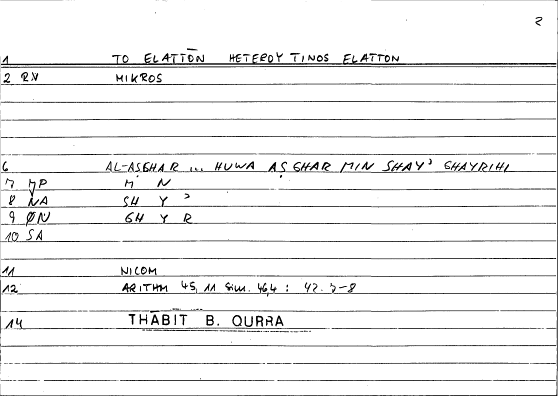 2
1 TO ELATTŌN HETEROY TINOS ELATTON
2 RN MIKROS
6 AL-AṢGHAR ... HUWA AṢGHAR MIN SHAYʾ GHAYRIHI
7 MP M N
8 NA SH Y ʾ
9 ØN GH Y R
10 SA
11 NICOM
12 ARITHM 45, 11 Sim. 46,4 : 42. 7-8
14 THĀBIT B. QURRA